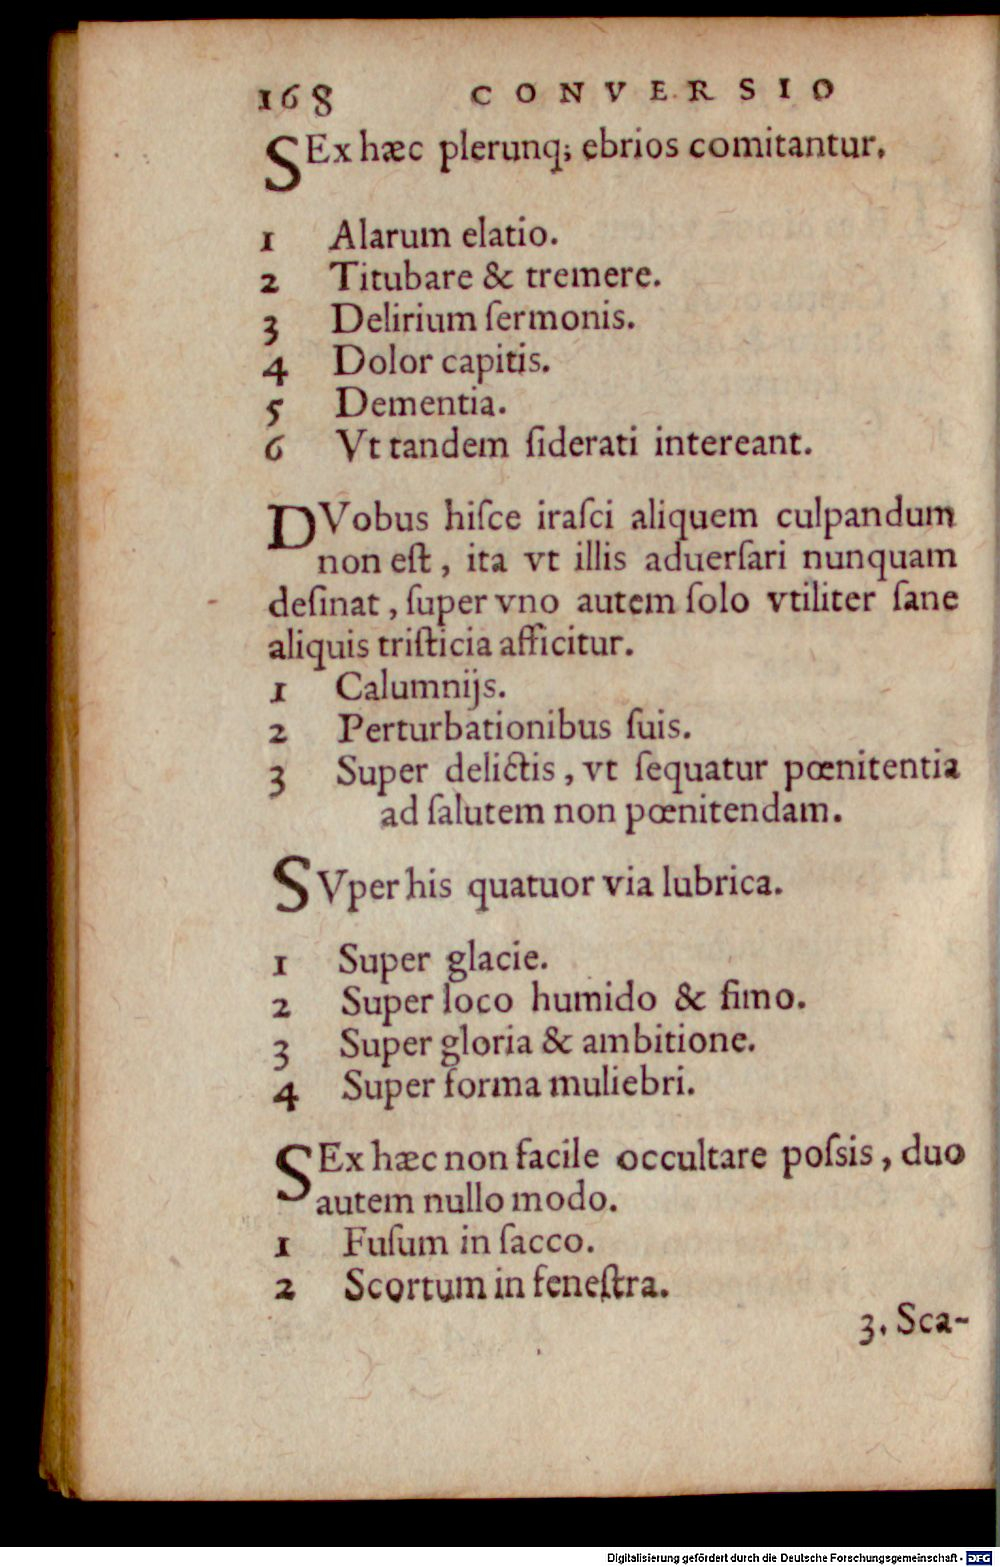 168 CONVERSIO
SEx hæc plerunq; ebrios comitantur.
1 Alarum elatio.
2 Titubare & tremere.
3 Delirium ſermonis.
4 Dolor capitis.
5 Dementia.
6 Vt tandem ſiderati intereant.
DVobus hiſce iraſci aliquem culpandum
non eſt, ita vt illis aduerſari nunquam
deſinat, ſuper vno autem ſolo vtiliter ſane
aliquis triſticia afficitur.
1 Calumnijs.
2 Perturbationibus ſuis.
3 Super delictis, vt ſequatur pœnitentia
ad ſalutem non pœnitendam.
SVper his quatuor via lubrica.
1 Super glacie.
2 Super loco humido & fimo.
3 Super gloria & ambitione.
4 Super forma muliebri.
SEx hæc non facile occultare poſsis, duo
autem nullo modo.
1 Fuſum in ſacco.
2 Scortum in feneſtra.
3. Sca-
Digitalisierung gefördert durch die Deutsche Forschungsgemeinschaft - DFG